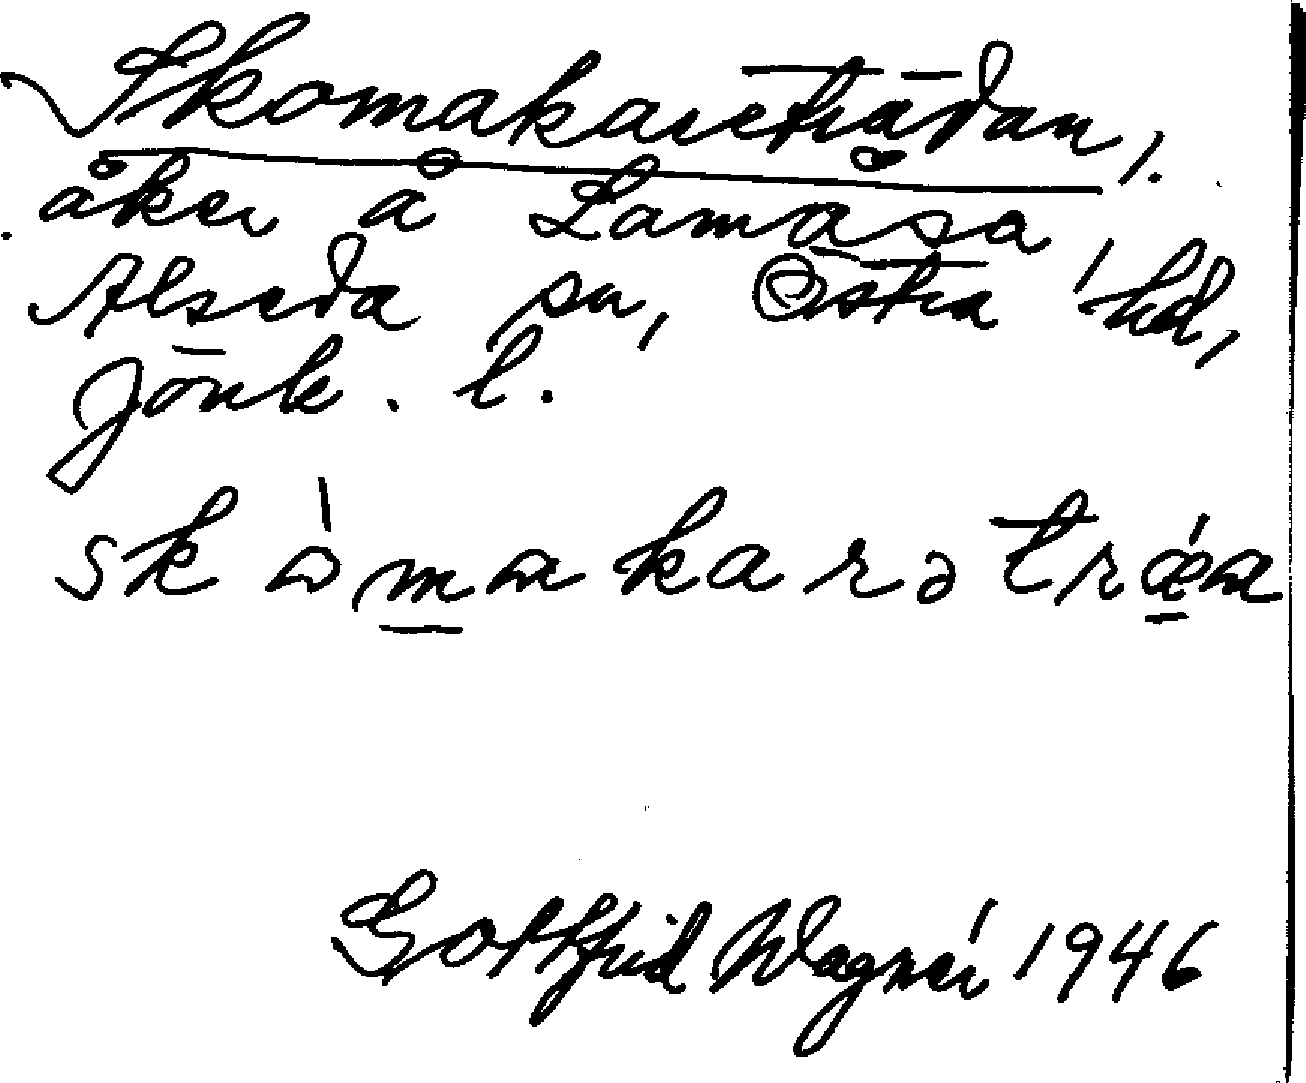 Skomakareträdan,
åker å Lamåsa,
Alseda sn, Östra hd,
Jönk. l.
skòmakarətrǽa
Gottfrid Wagnér 1946